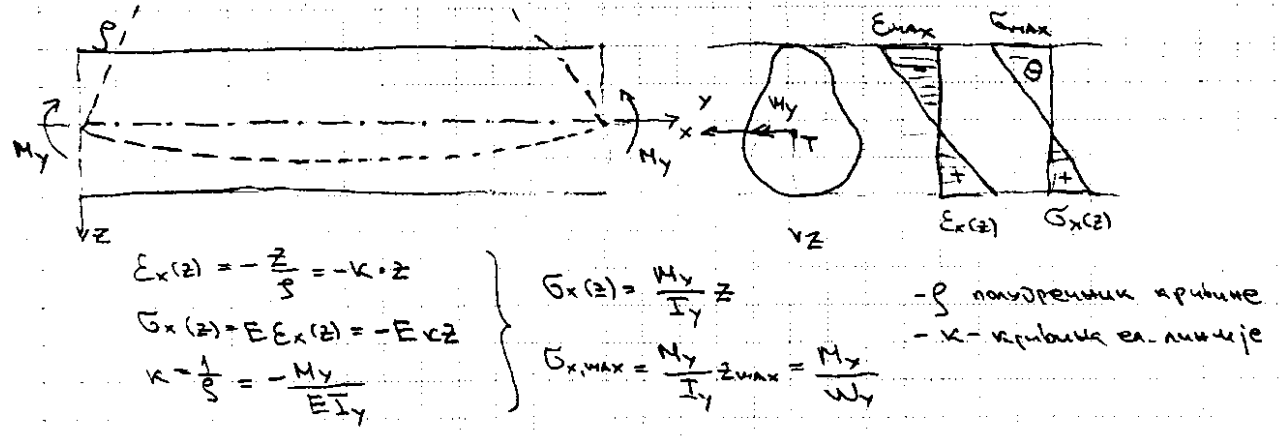 ρ
M_y
M_y
x
z
y
M_y
T
z
ε_max
-
+
ε_x(z)
σ_max
⊖
+
σ_x(z)
ε_x(z) = -z/ρ = -κ·z
σ_x(z) = E ε_x(z) = -E κ z
κ = 1/ρ = -M_y/(E I_y)
σ_x(z) = M_y/I_y z
σ_x,max = M_y/I_y z_max = M_y/W_y
- ρ полупречник кривине
- κ - кривина ел. линије